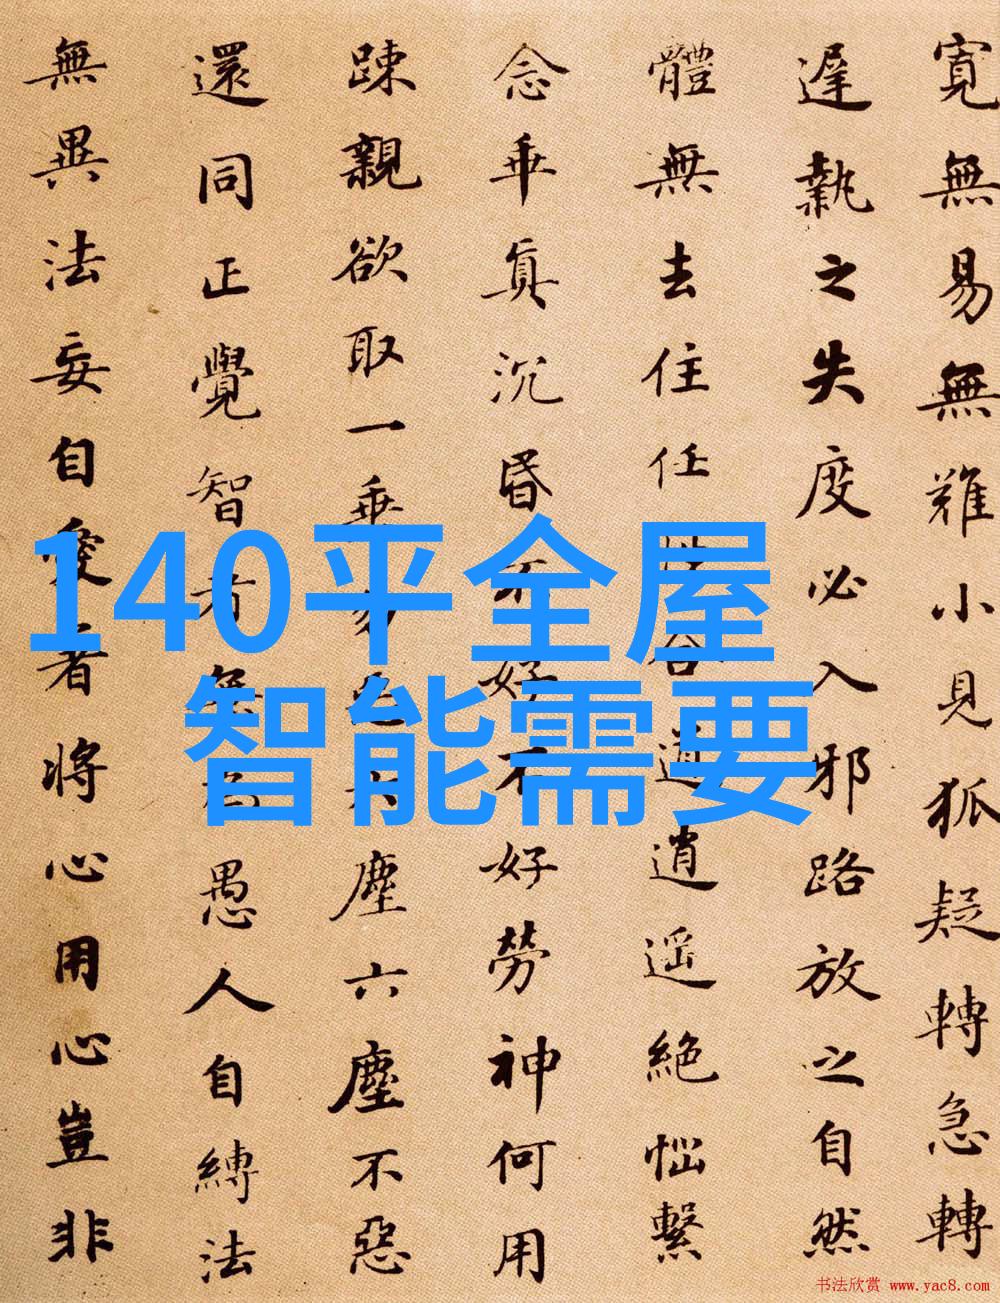 140平全屋
智能需要
寬無易無難小見狐疑轉急轉
遲執之失度必入邪路放之自然
體無去住任性合道逍遙絕惱繫
念乖真沉昏不好不好勞神何用
踈親欲取一乘勿惡六塵六塵不惡
還同正覺智者無為愚人自縛法
無異法妄自愛著將心用心豈非
书法欣赏 www.yac8.com